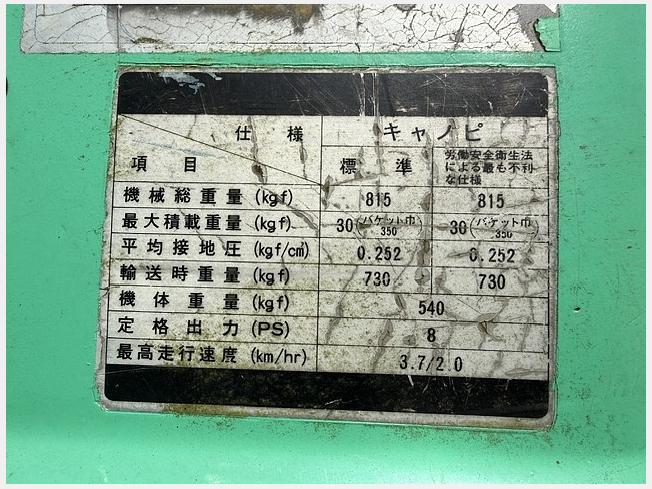 仕様 キャノピ
項目 標準 労働安全衛生法による最も不利な仕様
機械総重量 (kgf) 815 815
最大積載重量 (kgf) 30(バケット巾350) 30(バケット巾350)
平均接地圧 (kgf/cm²) 0.252 0.252
輸送時重量 (kgf) 730 730
機体重量 (kgf) 540
定格出力 (PS) 8
最高走行速度 (km/hr) 3.7/2.0